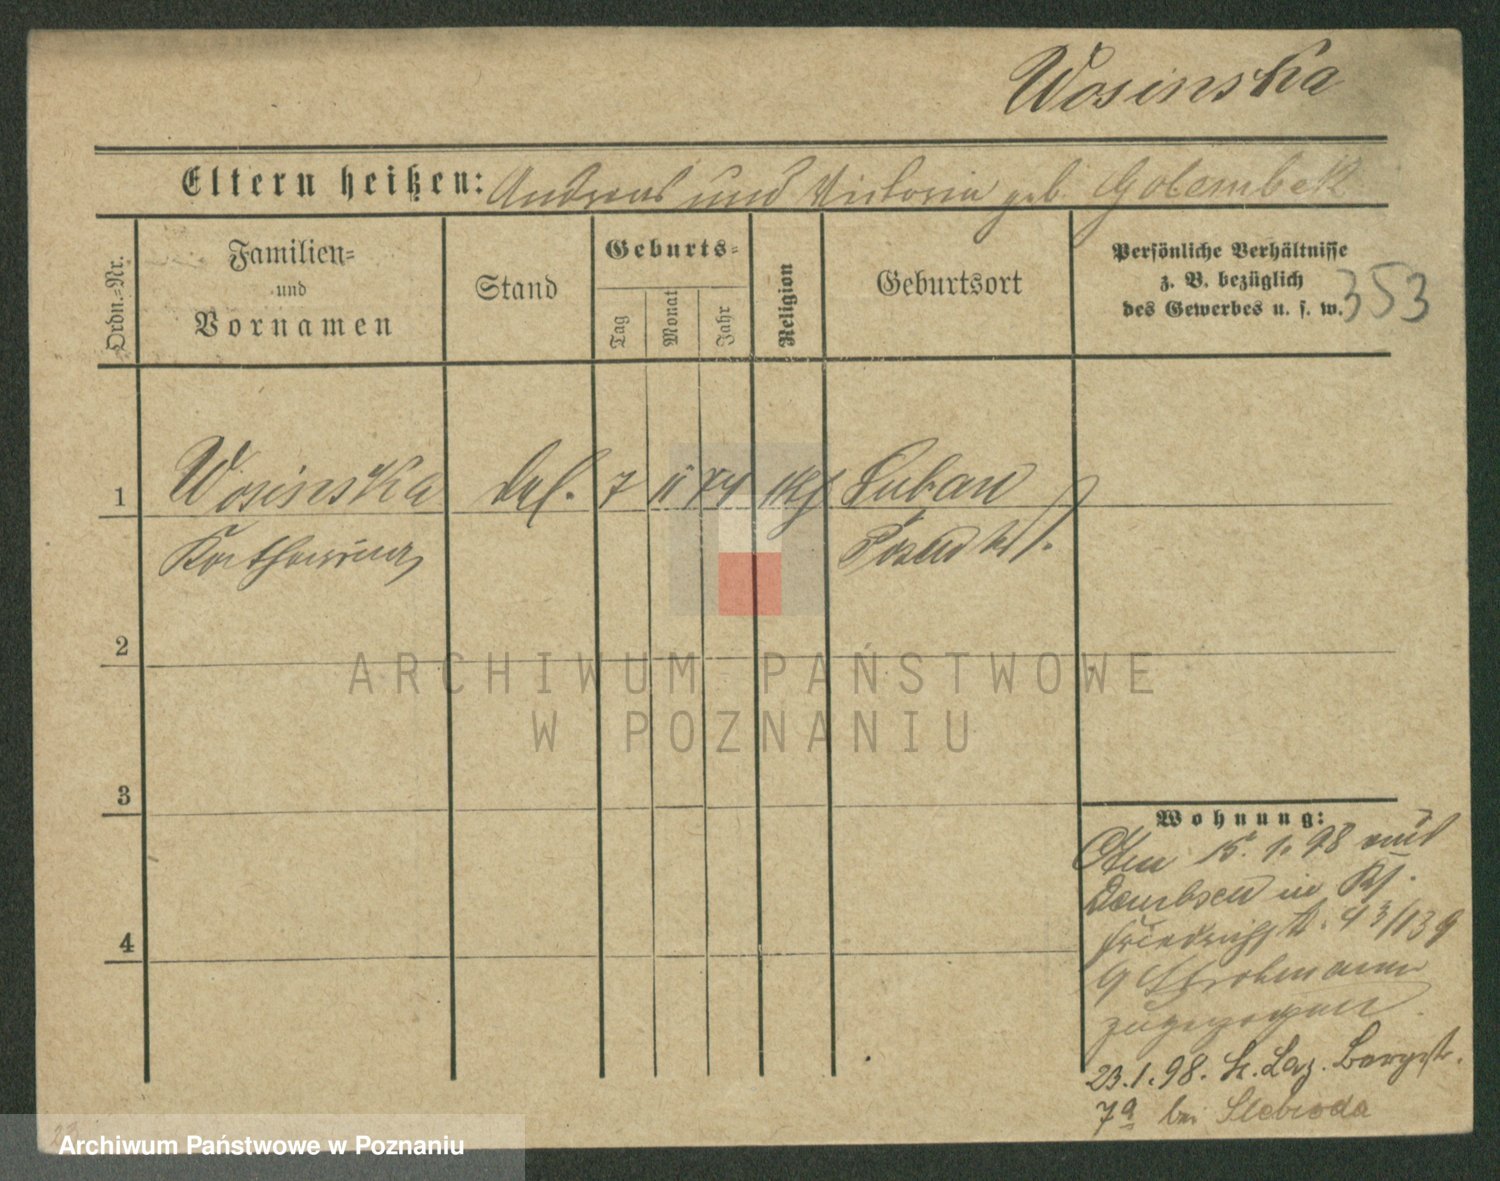 Wosinska
Eltern heißen: Andreas und Victoria geb. Golembek
Ordn.-Nr.
Familien-
und
Vornamen
Stand
Geburts-
Tag
Monat
Jahr
Religion
Geburtsort
Persönliche Verhältnisse
z. B. bezüglich
des Gewerbes u. s. w.
353
1 Wosinska 7 74 Luban
Katharina Posen
2
3
4
Wohnung:
15. 1. 98
in
43/139
zugezogen
23.1.98. St. Laz.
7a bei Slebioda
ARCHIWUM PAŃSTWOWE
W POZNANIU
Archiwum Państwowe w Poznaniu